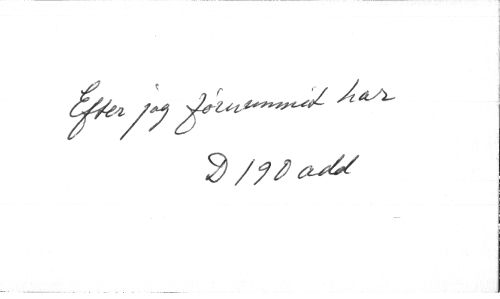 Efter jag förnummit har
D 190 add